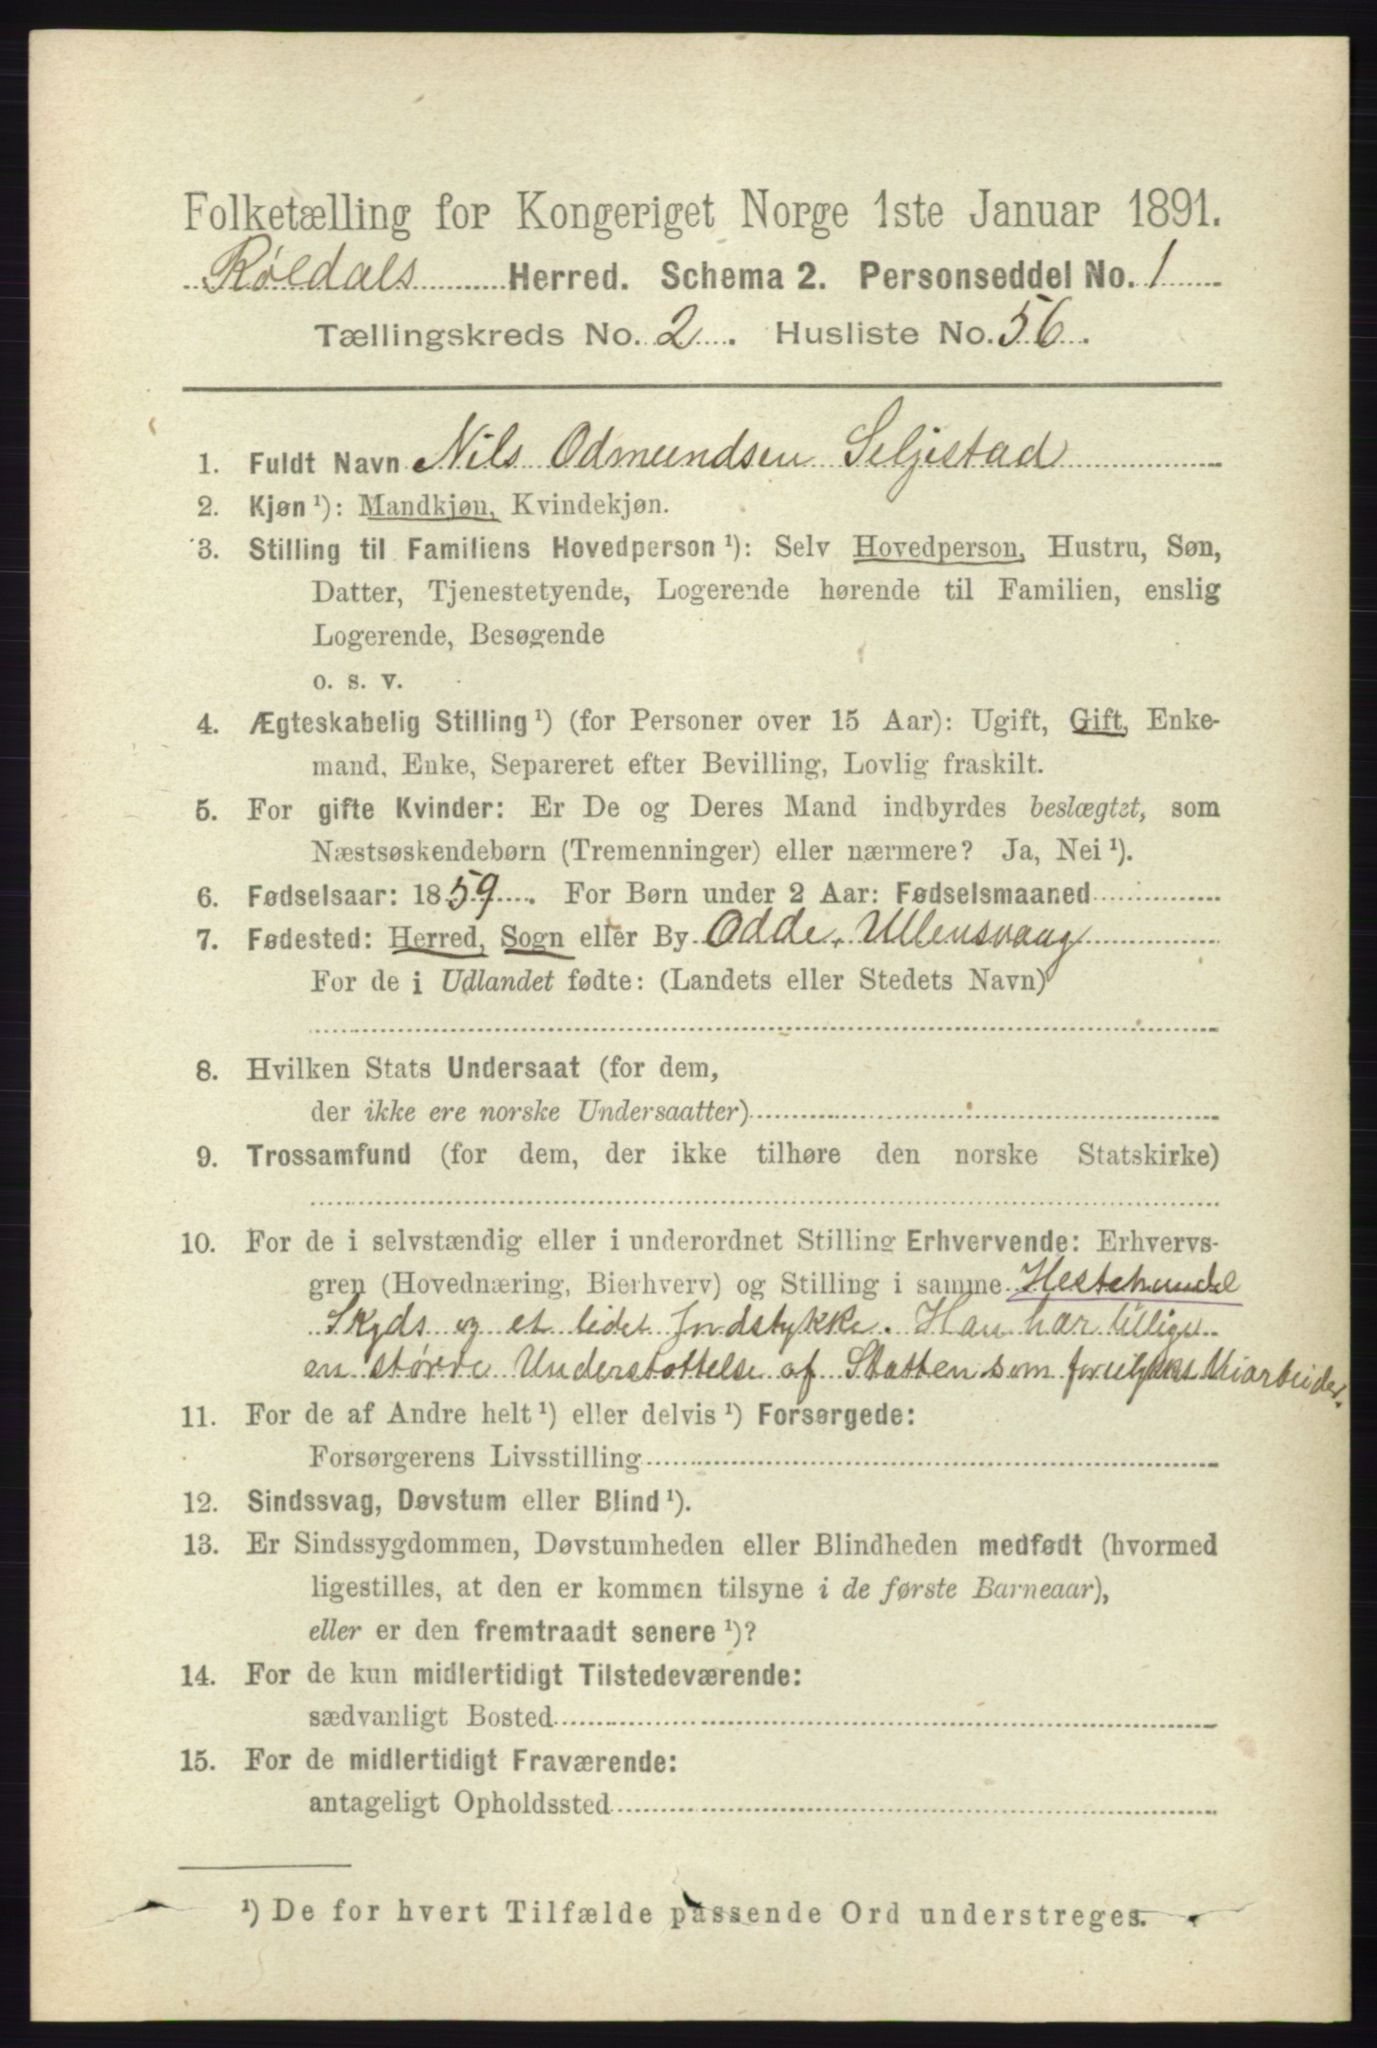 Folketælling for Kongeriget Norge 1ste Januar 1891.
Røldals Herred. Schema 2. Personseddel No. 1
Tællingskreds No. 2. Husliste No. 56.
1. Fuldt Navn Nils Odmundsen Seljestad
2. Kjøn ¹): Mandkjøn, Kvindekjøn.
3. Stilling til Familiens Hovedperson ¹): Selv Hovedperson, Hustru, Søn,
Datter, Tjenestetyende, Logerende hørende til Familien, enslig
Logerende, Besøgende
o. s. v.
4. Ægteskabelig Stilling ¹) (for Personer over 15 Aar): Ugift, Gift, Enke-
mand, Enke, Separeret efter Bevilling, Lovlig fraskilt.
5. For gifte Kvinder: Er De og Deres Mand indbyrdes beslægtet, som
Næstsøskendebørn (Tremenninger) eller nærmere? Ja, Nei ¹).
6. Fødselsaar: 1859. For Børn under 2 Aar: Fødselsmaaned
7. Fødested: Herred, Sogn eller By Odde, Ullensvang
For de i Udlandet fødte: (Landets eller Stedets Navn)
8. Hvilken Stats Undersaat (for dem,
der ikke ere norske Undersaatter)
9. Trossamfund (for dem, der ikke tilhøre den norske Statskirke)
10. For de i selvstændig eller i underordnet Stilling Erhvervende: Erhvervs-
gren (Hovednæring, Bierhverv) og Stilling i samme Hestehandel
Skyds og et lidet Jordstykke. Han har tillige
en større Understøttelse af Statten som
11. For de af Andre helt ¹) eller delvis ¹) Forsørgede:
Forsørgerens Livsstilling
12. Sindssvag, Døvstum eller Blind ¹).
13. Er Sindssygdommen, Døvstumheden eller Blindheden medfødt (hvormed
ligestilles, at den er kommen tilsyne i de første Barneaar),
eller er den fremtraadt senere ¹)?
14. For de kun midlertidigt Tilstedeværende:
sædvanligt Bosted
15. For de midlertidigt Fraværende:
antageligt Opholdssted
¹) De for hvert Tilfælde passende Ord understreges.